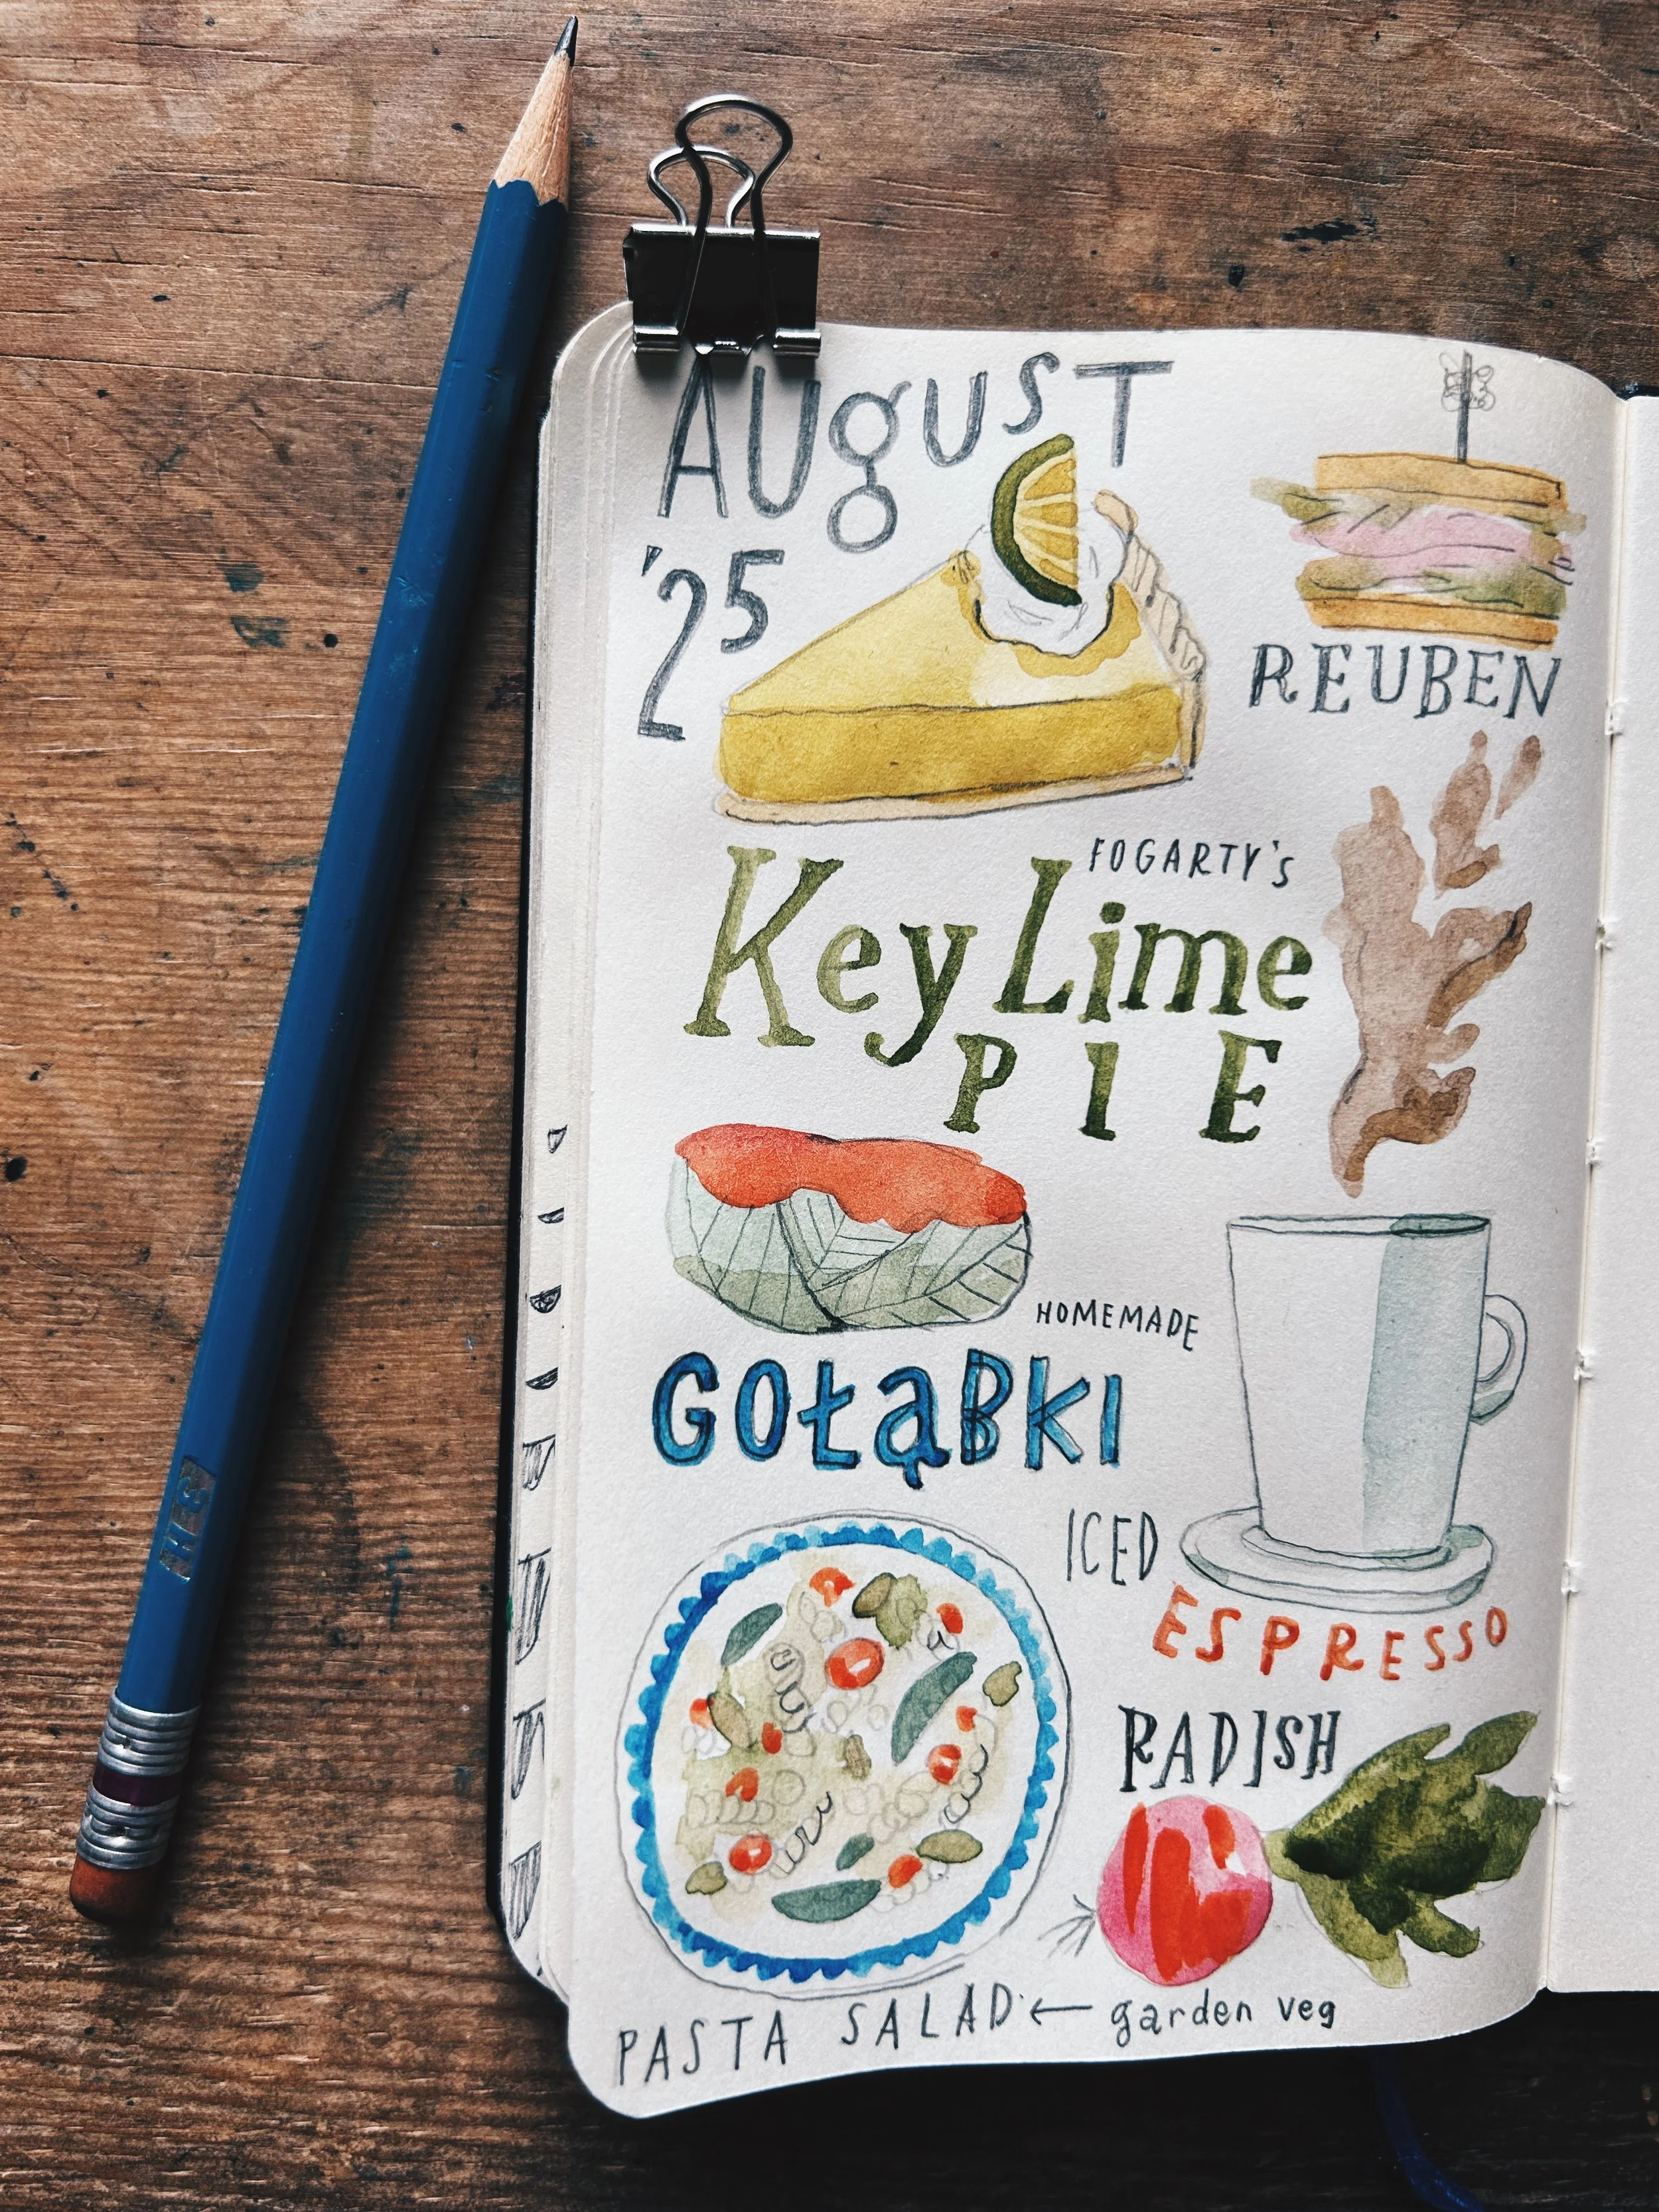 AUgUST
'25
REUBEN
FOGARTY'S
Key Lime
PIE
HOMEMADE
GOŁĄBKI
ICED
ESPRESSO
RADISH
PASTA SALAD ← garden veg